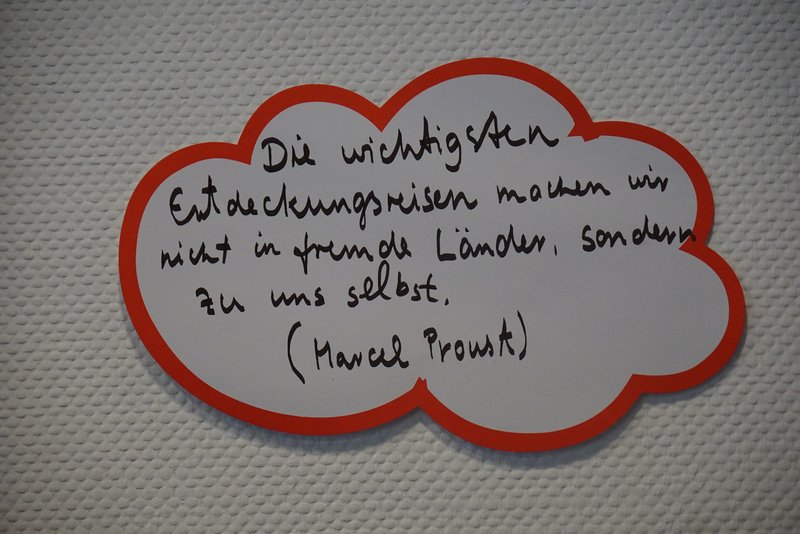 Die wichtigsten
Entdeckungsreisen machen wir
nicht in fremde Länder, sondern
zu uns selbst.
(Marcel Proust)